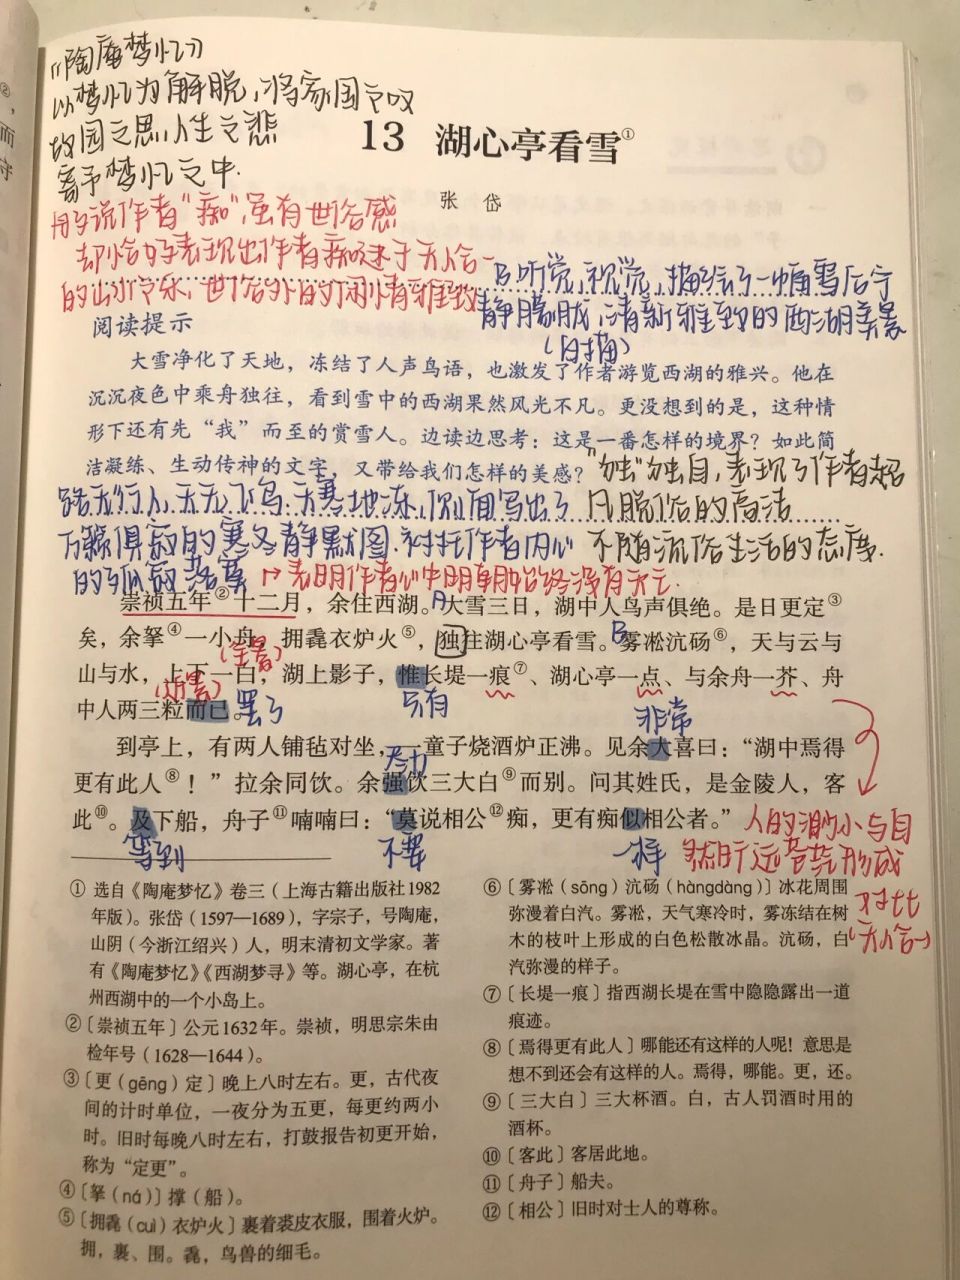 《陶庵梦忆》
以梦忆为解脱,将家国之叹
故园之思,人生之悲
寄予梦忆之中.
13 湖心亭看雪①
张 岱
用的说作者"痴",虽有世俗感
却恰好表现出作者痴迷于天人合一
的山水之乐,世俗之外的闲情雅致
B听觉,视觉,描绘了一幅雪后宁
静朦胧,清新雅致的西湖美景
(白描)
阅读提示
大雪净化了天地,冻结了人声鸟语,也激发了作者游览西湖的雅兴。他在
沉沉夜色中乘舟独往,看到雪中的西湖果然风光不凡。更没想到的是,这种情
形下还有先“我”而至的赏雪人。边读边思考:这是一番怎样的境界?如此简
洁凝练、生动传神的文字,又带给我们怎样的美感?
"独"独自,表现了作者超
凡脱俗的高洁
不随流俗生活的态度.
路无行人,天无飞鸟.天寒地冻,侧面写出了
万籁俱寂的寒冬静默图.衬托作者内心
的孤寂落寞
↦表明作者心中明朝始终没有灭亡.
崇祯五年②十二月,余住西湖。A大雪三日,湖中人鸟声俱绝。是日更定③
矣,余拏④一小舟,拥毳衣炉火⑤,独往湖心亭看雪。B雾凇沆砀⑥,天与云与
(全景)
山与水,上下一白,湖上影子,惟长堤一痕⑦、湖心亭一点、与余舟一芥、舟
(近景)
只有
中人两三粒而已。
罢了
非常
到亭上,有两人铺毡对坐,一童子烧酒炉正沸。见余大喜曰:“湖中焉得
尽力
更有此人⑧!”拉余同饮。余强饮三大白⑨而别。问其姓氏,是金陵人,客
此⑩。及下船,舟子⑪喃喃曰:“莫说相公⑫痴,更有痴似相公者。”
等到
不要
一样
人的渺小与自
然旷远苍茫形成
对比
(天人合一)
① 选自《陶庵梦忆》卷三(上海古籍出版社1982
年版)。张岱(1597—1689),字宗子,号陶庵,
山阴(今浙江绍兴)人,明末清初文学家。著
有《陶庵梦忆》《西湖梦寻》等。湖心亭,在杭
州西湖中的一个小岛上。
②〔崇祯五年〕公元1632年。崇祯,明思宗朱由
检年号(1628—1644)。
③〔更(gēng)定〕晚上八时左右。更,古代夜
间的计时单位,一夜分为五更,每更约两小
时。旧时每晚八时左右,打鼓报告初更开始,
称为“定更”。
④〔拏(ná)〕撑(船)。
⑤〔拥毳(cuì)衣炉火〕裹着裘皮衣服,围着火炉。
拥,裹、围。毳,鸟兽的细毛。
⑥〔雾凇(sōng)沆砀(hàngdàng)〕冰花周围
弥漫着白汽。雾凇,天气寒冷时,雾冻结在树
木的枝叶上形成的白色松散冰晶。沆砀,白
汽弥漫的样子。
⑦〔长堤一痕〕指西湖长堤在雪中隐隐露出一道
痕迹。
⑧〔焉得更有此人〕哪能还有这样的人呢!意思是
想不到还会有这样的人。焉得,哪能。更,还。
⑨〔三大白〕三大杯酒。白,古人罚酒时用的
酒杯。
⑩〔客此〕客居此地。
⑪〔舟子〕船夫。
⑫〔相公〕旧时对士人的尊称。